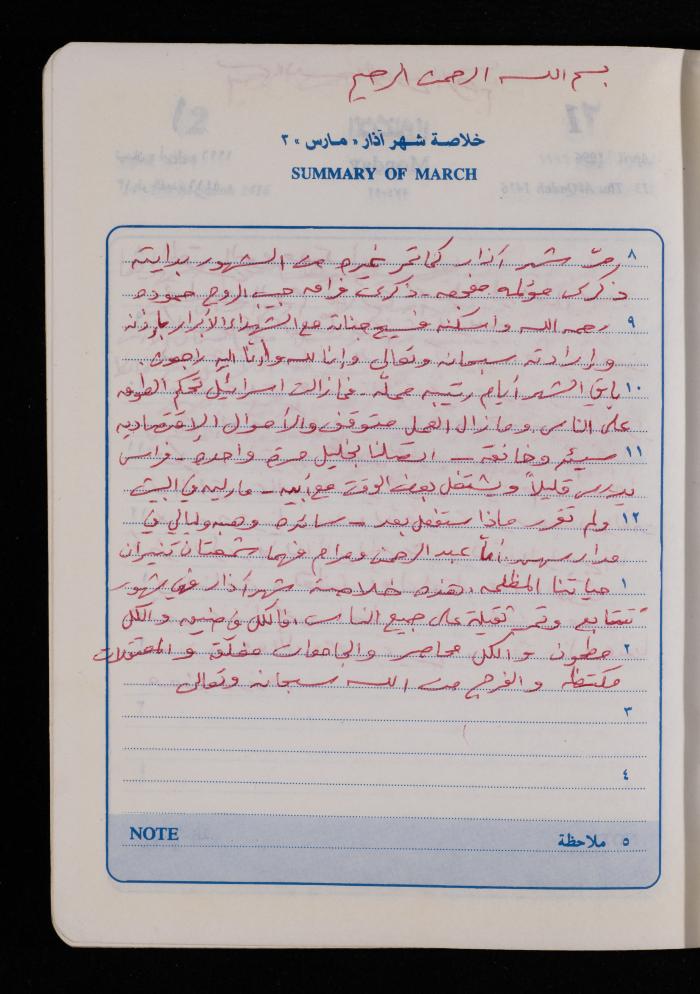 بسم الله الرحمن الرحيم
خلاصة شهر آذار «مارس» ٣
SUMMARY OF MARCH
٨ مرّ شهر آذار كما تمر غيره من الشهور بدايته
ذكرى مؤلمه مفجعه - ذكرى فراق حبيب الروح حموده
٩ رحمه الله واسكنه فسيح جنانه مع الشهداء الأبرار بإذنه
وإرادته سبحانه وتعالى وإنا لله وإنا اليه راجعون
١٠ باقي الشهر أيام رتيبه ممله - فمازالت اسرائيل تحكم الطوق
على الناس وما زال العمل متوقف والأحوال الاقتصاديه
١١ سيئه وخانقة - اتصلنا بخليل مرة واحده - فراس
يدرس قليلاً ويشتغل بعض الوقت مع أبيه - ماريه في البيت
١٢ ولم تقرر ماذا ستفعل بعد - سائده وهبه وليالي في
مدارسهن أمّا عبد الرحمن ومرام فهما شمعتان تنيران
١ حياتنا المظلمه، هذه خلاصة شهر آذار فهي شهور
تتتابع وتمر ثقيلة على جميع الناس، فالكل في ضيق والكل
٢ مطون والكل محاصر والجامعات مغلقة والمعتقلات
مكتظة والفرج من الله سبحانه وتعالى
٣
٤
NOTE
٥ ملاحظة